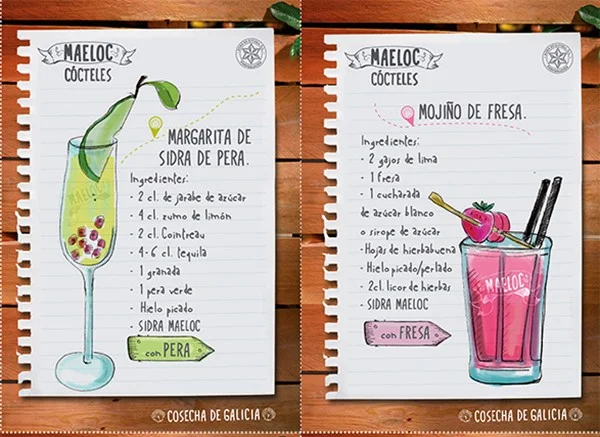 MAELOC
CÓCTELES
MARGARITA DE
SIDRA DE PERA.
Ingredientes:
- 2 cl. de jarabe de azúcar
- 4 cl. zumo de limón
- 2 cl. Cointreau
- 4-6 cl. tequila
- 1 granada
- 1 pera verde
- Hielo picado
- SIDRA MAELOC
con PERA
COSECHA DE GALICIA
MAELOC
CÓCTELES
MOJIÑO DE FRESA.
Ingredientes:
- 2 gajos de lima
- 1 fresa
- 1 cucharada
de azúcar blanco
o sirope de azúcar
- Hojas de hierbabuena
- Hielo picado/perlado
- 2cl. licor de hierbas
- SIDRA MAELOC
MAELOC
con FRESA
COSECHA DE GALICIA